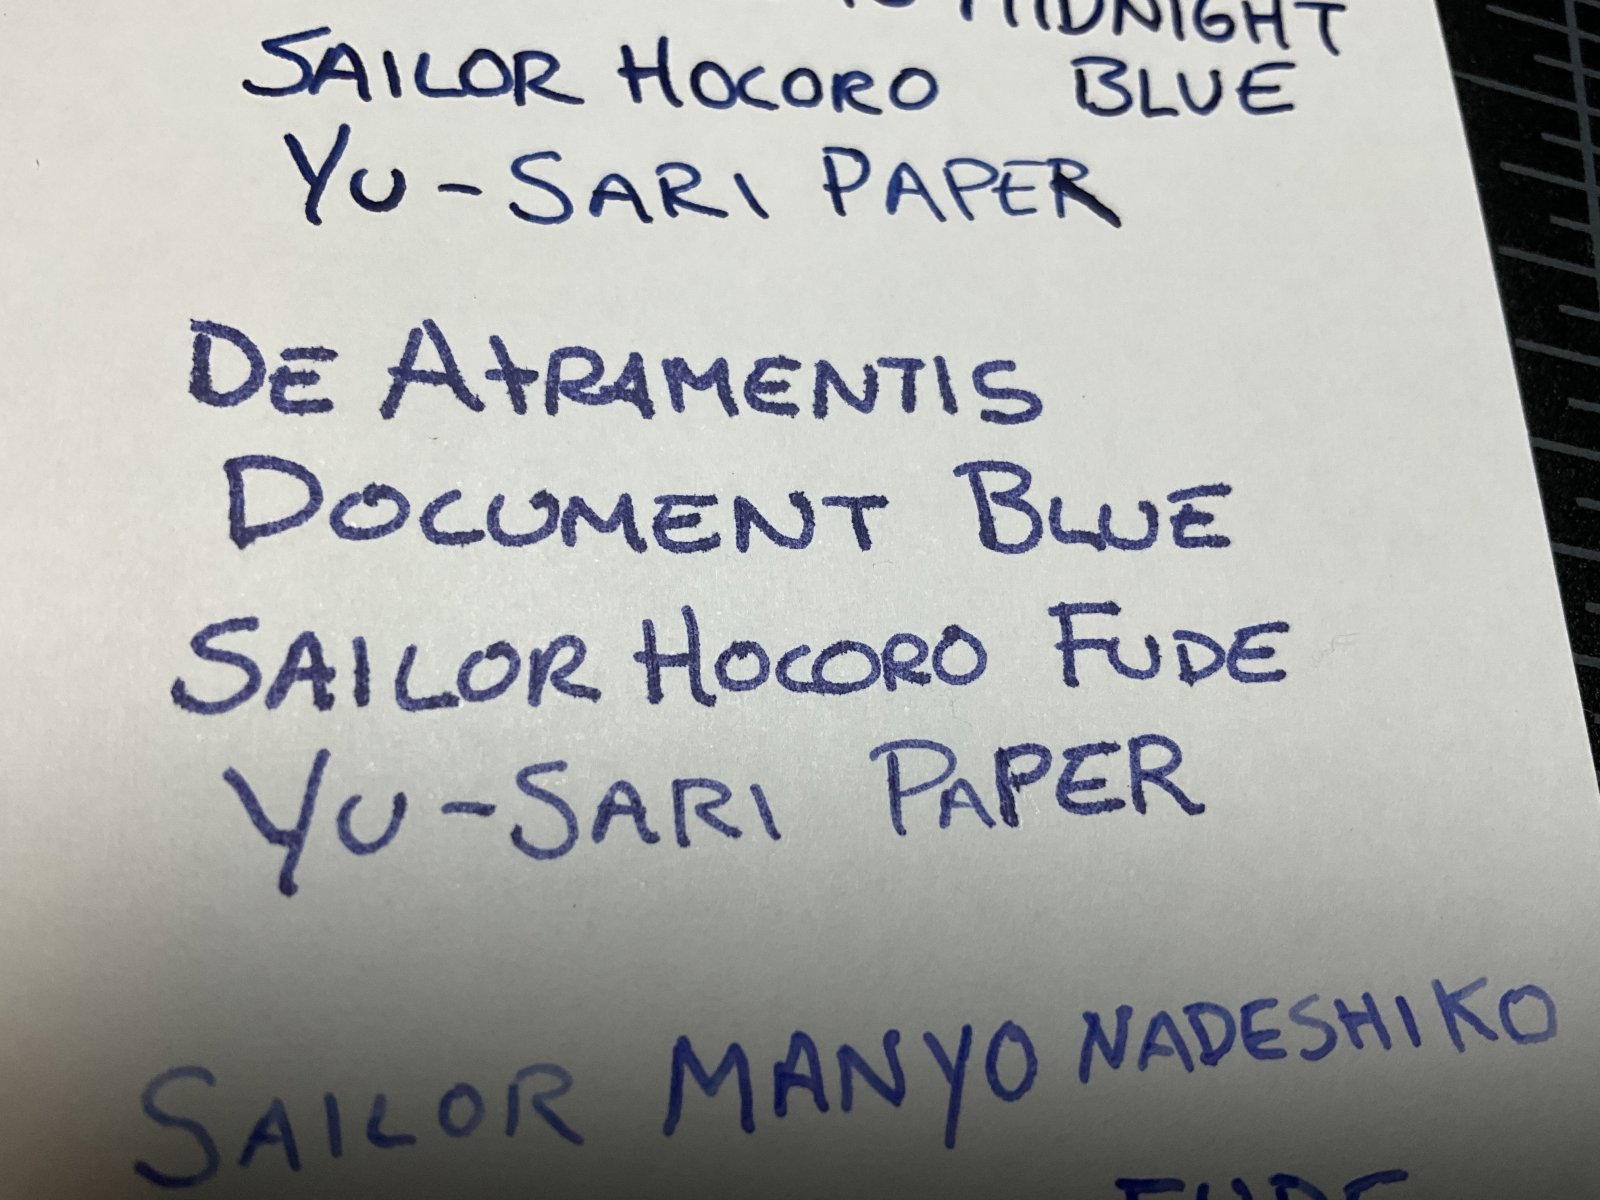 MIDNIGHT
SAILOR HOCORO BLUE
YU-SARI PAPER
DE ATRAMENTIS
DOCUMENT BLUE
SAILOR HOCORO FUDE
YU-SARI PAPER
SAILOR MANYO NADESHIKO
FUDE